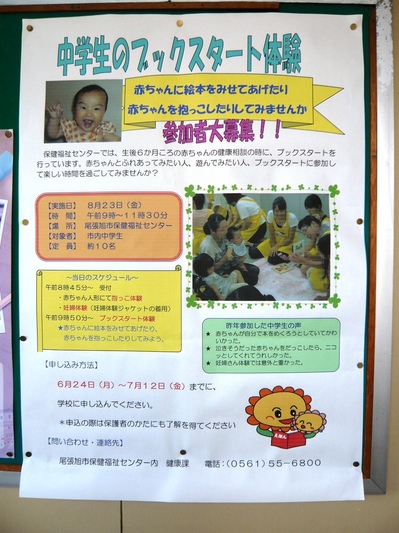 中学生のブックスタート体験
赤ちゃんに絵本をみせてあげたり
赤ちゃんを抱っこしたりしてみませんか
参加者大募集！！
保健福祉センターでは、生後６か月ころの赤ちゃんの健康相談の時に、ブックスタートを
行っています。赤ちゃんとふれあってみたい人、遊んでみたい人、ブックスタートに参加し
て楽しい時間を過ごしてみませんか？
【実施日】　８月２３日（金）
【時　間】　午前９時～１１時３０分
【場　所】　尾張旭市保健福祉センター
【対象者】　市内中学生
【定　員】　約１０名
～当日のスケジュール～
午前８時４５分～　受付
・赤ちゃん人形にて抱っこ体験
・妊婦体験（妊婦体験ジャケットの着用）
午前９時５０分～　ブックスタート体験
★赤ちゃんに絵本をみせてあげたり、
赤ちゃんを抱っこしたりしてみよう。
昨年参加した中学生の声
★ 赤ちゃんが自分で本をめくろうとしていてかわ
いかった。
★ 泣きそうだった赤ちゃんをだっこしたら、ニコ
ッとしてくれてうれしかった。
★ 妊婦さん体験では意外と重かった。
【申し込み方法】
６月２４日（月）～７月１２日（金）までに、
学校に申し込んでください。
＊申込の際は保護者のかたにも了解を得てください
えほん
【問い合わせ・連絡先】
尾張旭市保健福祉センター内　健康課　　電話：（０５６１）５５－６８００